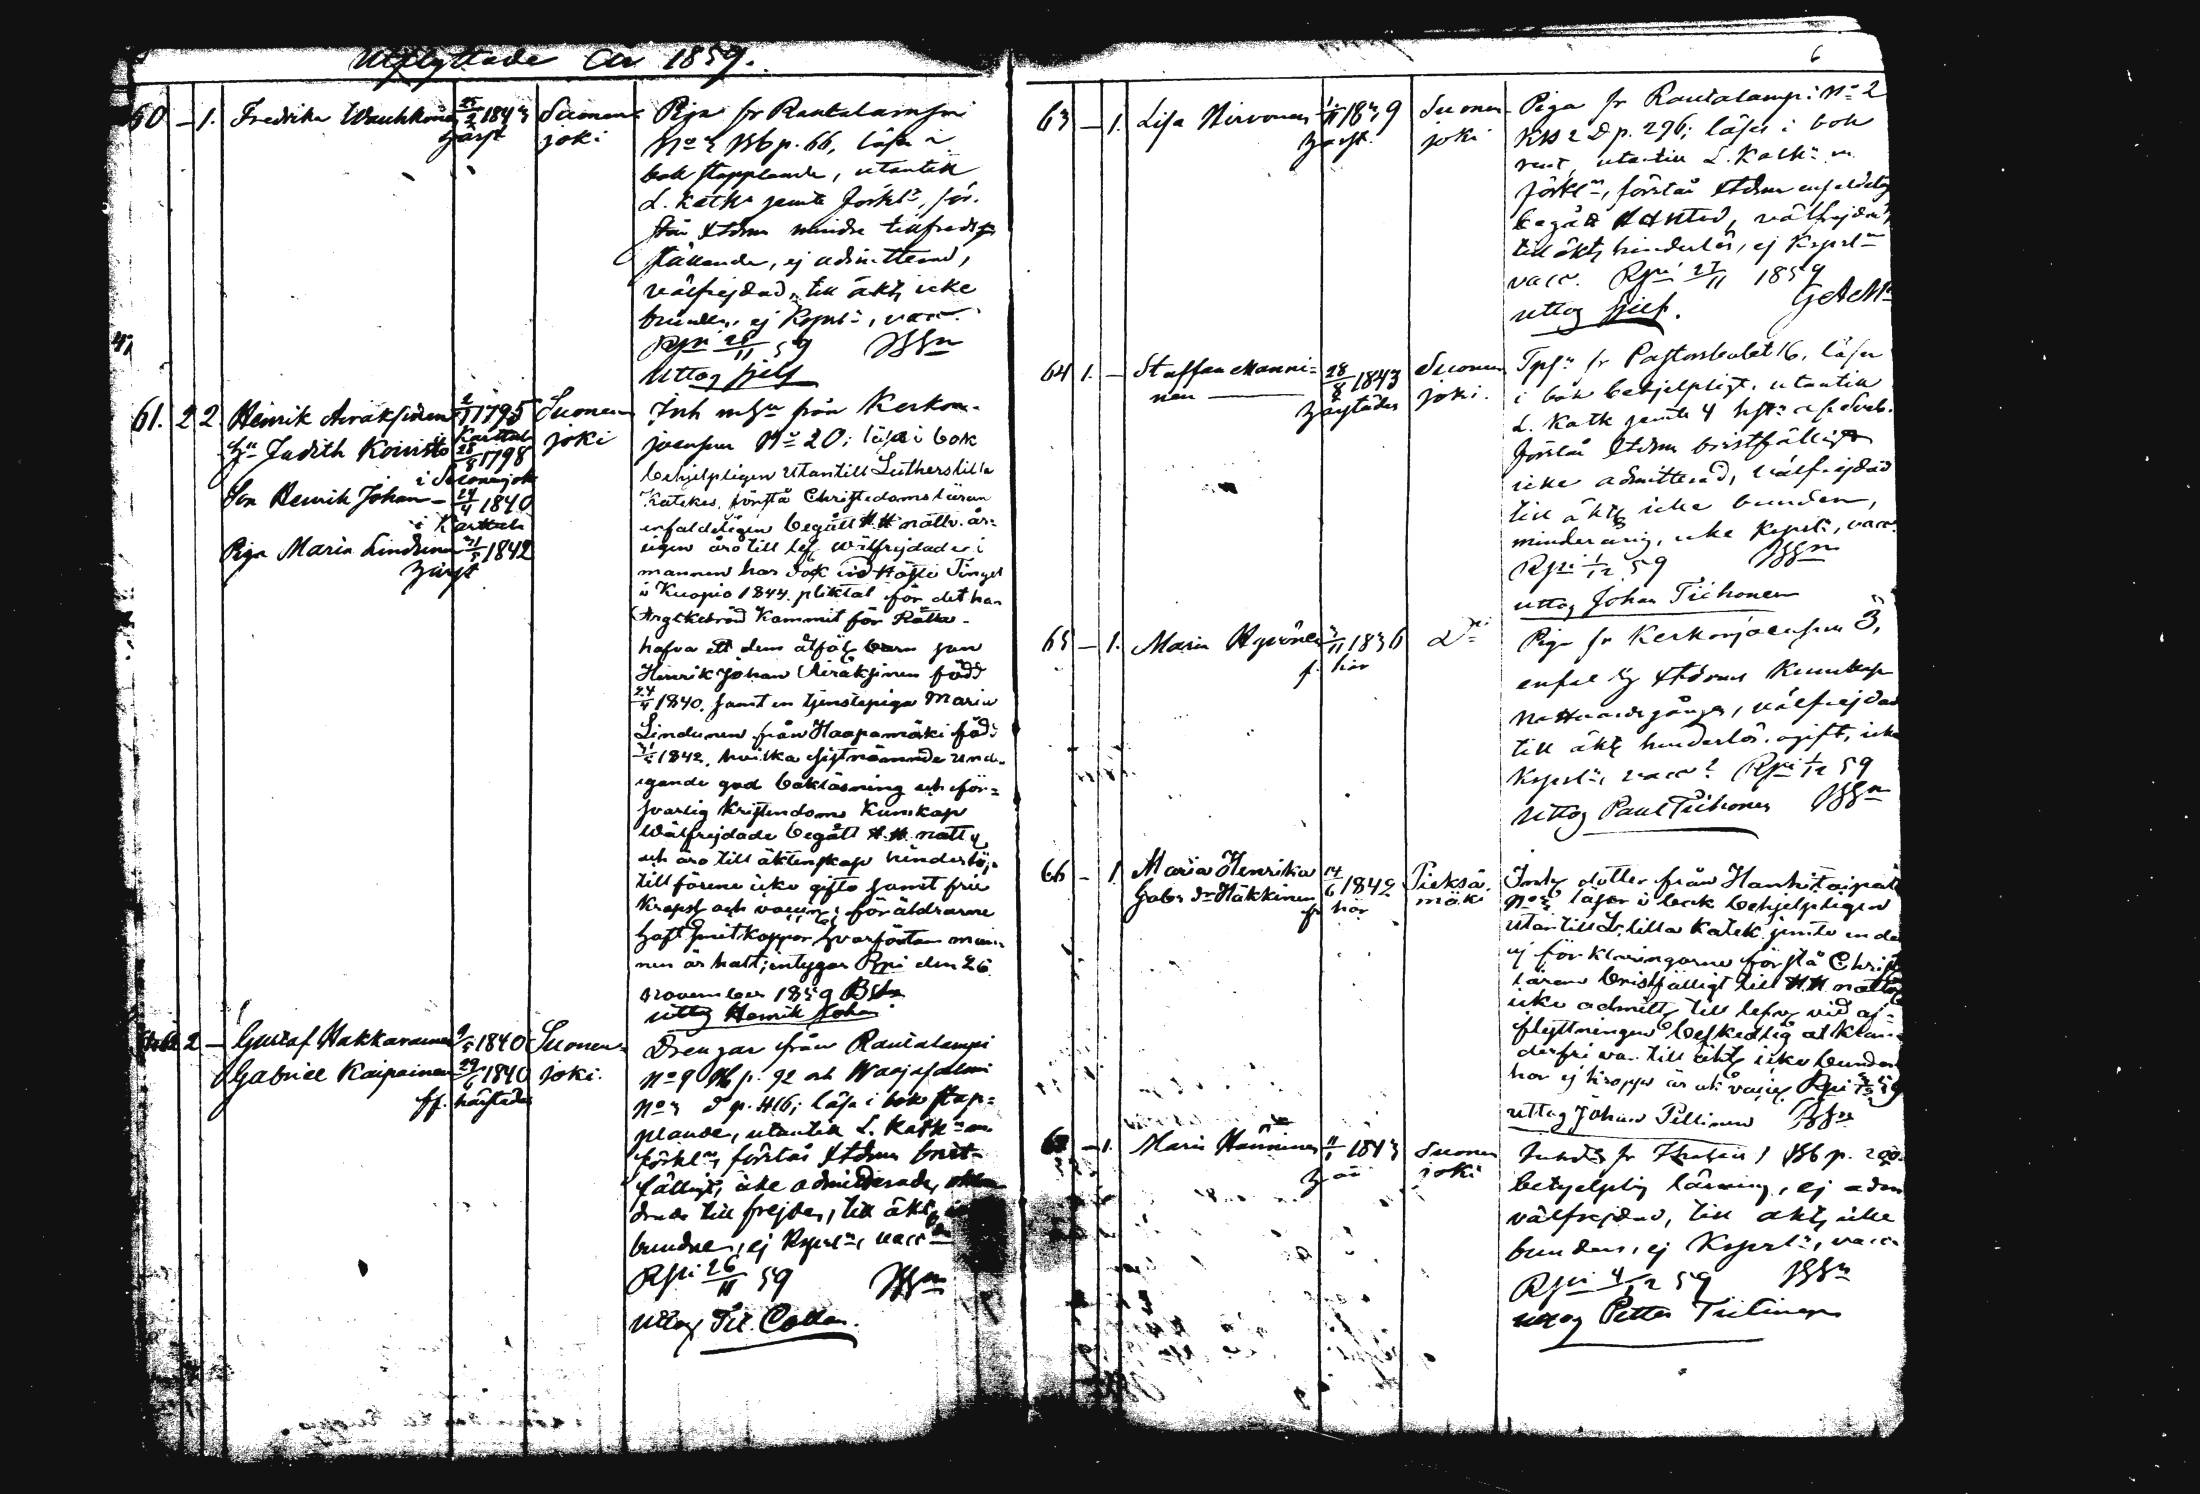 Utflyttade År 1859.
60 – 1. Fredrika Wauhkonen 25/2 1843 Suonen-
härst. joki
Piga fr Rautalampi
No 3 p. 66, läser i
bok stapplande, utantill
L. Kathn jemte förkln, för-
står Xtdmn mindre tillfreds-
ställande, ej admitterad,
välfrejdad, till äkts icke
bunden, ej Kopsln, vacc.
Rpi 28/11 59
Uttog sjelf
61. 2 2. Henrik Airaksinen 1795 Suonen-
i Karttula joki
Hu Judith Koivisto 28/8 1798
i Suonenjoki
Son Henrik Johan – 24/4 1840
i Karttula
Piga Maria Lindunen 31/5 1842
härst
Inh från Kerkon-
joensuu No 20; läsa i bok
behjelpligen utantill Luthers lilla
Katekes, förstå Christedomsläran
enfaldeligen begått H.H. nattv. år-
ligen äro till lefv. wälfrejdade;
mannen har dock vid Höste Tinget
i Kuopio 1844. pliktat för det han
Kommit för Rätta.
hafva ett dem åtföljer barn son
Henrik Johan Airaksinen född
24/4 1840. samt en tjenstepiga Maria
Lindunen från Haapamäki född
31/5 1842. hvilka sistnämnde
egande god bokläsning och för-
svarlig Kristendoms Kunskap
Wälfrejdade begått H.H. nattv
och äro till äktenskap hinderlös,
tillförene icke gifte samt frie
Kropsf och vaccin; föräldrarne
haft smitkoppor hvarförutan man-
nen är halt; intygar Rpi den 26
november 1859
uttog Henrik Johan
62 2 – Gustaf Hakkarainen 9/5 1840 Suonen-
Gabriel Kaipainen 29/6 1840 joki.
ff. härstädes
Drengar från Rautalampi
No 9 p. 92 och Waajasalmi
No 3 d p. 416; läsa i bok stap-
plande, utantill L. Kathn m
förkln, förstår Xtdmn brist-
fälligt, icke admitterade, oklan-
drade till frejden, till äkts icke
bundne, ej Kopsln, vacc
Rpi 26/11 59
Uttog Collan.
6
63 – 1. Lisa Hirvonen 1/11 1839 Suonen-
härst. joki
Piga fr Rautalampi No 2
p. 296; läser i bok
rent, utantill L. Kathn m
förkln, förstår Xtdmn enfaldeligt
begått HHNtvd, välfrejdad,
till äkts hinderlös, ej Kopsln
vacc. Rpi 27/11 1859
uttog sjelf.
64 1. – Staffan Manni- 28/8 1843 Suonen-
nen härstädes joki.
fr Pastorsbolet 16, läser
i bok behjelpligt, utantill
L. Kath jemte 4
förstår Xtdmn bristfälligt
icke admitterad, välfrejdad
till äkts icke bunden,
minderårig, icke Kopsln, vacc.
Rpi 1/12 59
uttog Johan Tiihonen
65 – 1. Maria Hyvönen 3/11 1836 D:o
f. här
Piga fr Kerkonjoensuu 3,
enfal lig Xtdoms Kunskap
Nattvardsgången, välfrejdad
till äkts hinderlös, ogift, icke
Kopsln, vacc? Rpi 1/12 59
Uttog Paul Tiihonen
66 – 1. Maria Henrika 14/6 1842 Pieksä-
Gabr. dr Häkkinen f. här mäki
dotter från Hankitaipale
No 3 läser i bok behjelpligen
utantill L. lilla Katek. jemte en del
af förklaringarne förstå Christ
läran bristfälligt till H.H. nattv
icke admitt, till lefv. vid af-
flyttningen beskedlig
fri till äkts icke bunden
har ej kroppsf är ock vaccin Rpi
uttog Johan Pellinen
67 – 1. Maria Hänninen 11/1 1843 Suonen
joki
fr 1 p. 200.
behjelplig läsning, ej adm
välfrejdad, till äkts icke
bunden, ej Kopsln, vacc
Rpi 4/12 59
uttog Petter Tiitinen